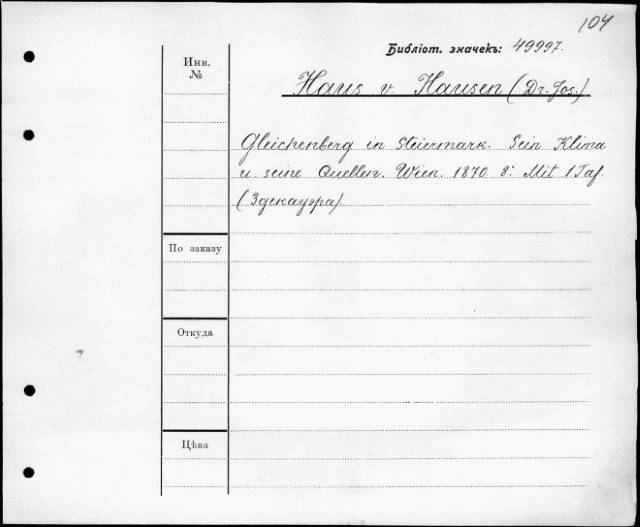 104
Библіот. значекъ: 49997.
Инв.
№
Haus v. Hausen (Dr. Jos.)
Gleichenberg in Steiermark. Sein Klima
u. seine Quellen. Wien. 1870. 8°. Mit 1 Taf.
(Здекауэра)
По заказу
Откуда
Цѣна